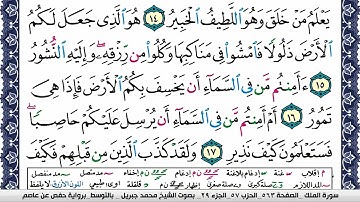 يَعْلَمُ مَنْ خَلَقَ وَهُوَ ٱللَّطِيفُ ٱلْخَبِيرُ ١٤ هُوَ ٱلَّذِى جَعَلَ لَكُمُ
ٱلْأَرْضَ ذَلُولًا فَٱمْشُوا۟ فِى مَنَاكِبِهَا وَكُلُوا۟ مِن رِّزْقِهِۦ ۖ وَإِلَيْهِ ٱلنُّشُورُ
١٥ ءَأَمِنتُم مَّن فِى ٱلسَّمَآءِ أَن يَخْسِفَ بِكُمُ ٱلْأَرْضَ فَإِذَا هِىَ
تَمُورُ ١٦ أَمْ أَمِنتُم مَّن فِى ٱلسَّمَآءِ أَن يُرْسِلَ عَلَيْكُمْ حَاصِبًا ۖ
فَسَتَعْلَمُونَ كَيْفَ نَذِيرِ ١٧ وَلَقَدْ كَذَّبَ ٱلَّذِينَ مِن قَبْلِهِمْ فَكَيْفَ
سورة الملك الصفحة ٥٦٣ الحزب ٥٧ الجزء ٢٩ بصوت الشيخ محمد جبريل بالتوسط برواية حفص عن عاصم